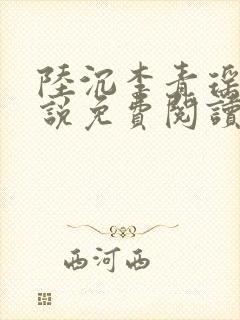 陸沉李青瑤
說免費閱讀
西河西